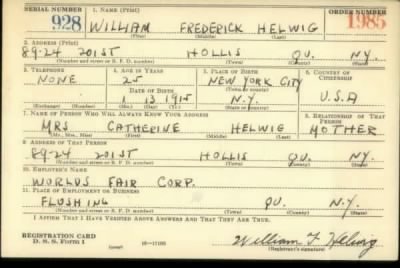 SERIAL NUMBER 1. NAME (Print) ORDER NUMBER
928 WILLIAM FREDERICK HELWIG 1985
(First) (Middle) (Last)
2. ADDRESS (Print)
89-24 201ST HOLLIS QU. N.Y.
(Number and street or R. F. D. number) (Town) (County) (State)
3. TELEPHONE 4. AGE IN YEARS 5. PLACE OF BIRTH 6. COUNTRY OF CITIZENSHIP
NONE 25 NEW YORK CITY
DATE OF BIRTH (Town or county)
1 13 1915 N.Y. U.S.A
(Exchange) (Number) (Mo.) (Day) (Yr.) (State or country)
7. NAME OF PERSON WHO WILL ALWAYS KNOW YOUR ADDRESS 8. RELATIONSHIP OF THAT PERSON
MRS CATHERINE HELWIG MOTHER
(Mr., Mrs., Miss) (First) (Middle) (Last)
9. ADDRESS OF THAT PERSON
89-24 201ST HOLLIS QU. N.Y.
(Number and street or R. F. D. number) (Town) (County) (State)
10. EMPLOYER'S NAME
WORLDS FAIR CORP.
11. PLACE OF EMPLOYMENT OR BUSINESS
FLUSHING QU. N.Y.
(Number and street or R. F. D. number) (Town) (County) (State)
I AFFIRM THAT I HAVE VERIFIED ABOVE ANSWERS AND THAT THEY ARE TRUE.
REGISTRATION CARD
D. S. S. Form 1 (over) 16-17105 William F. Helwig
(Registrant's signature)